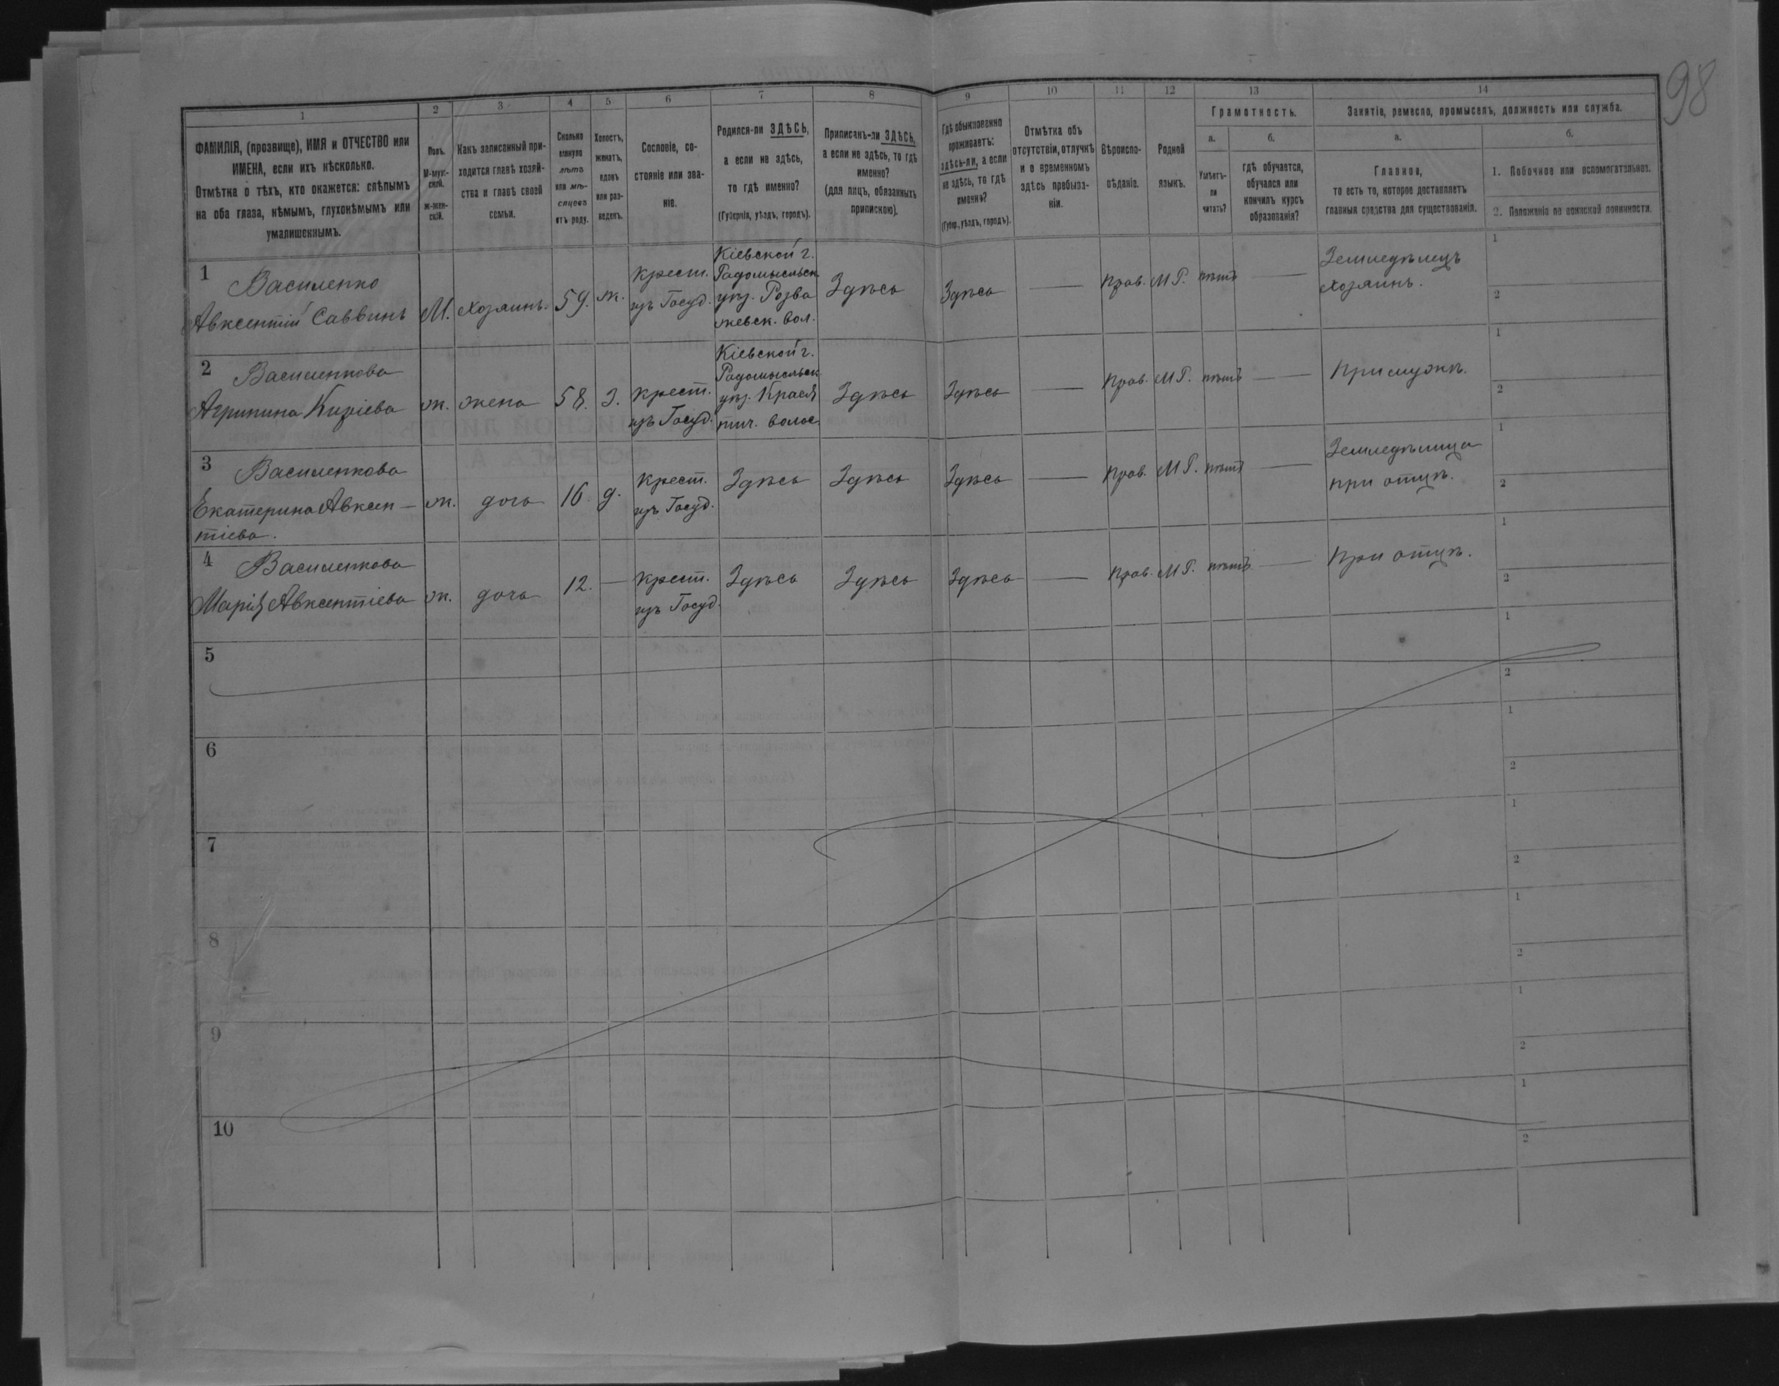 98
1
2
3
4
5
6
7
8
9
10
11
12
13
14
ФАМИЛІЯ, (прозвище), ИМЯ и ОТЧЕСТВО или
ИМЕНА, если ихъ нѣсколько.
Отмѣтка о тѣхъ, кто окажется: слѣпымъ
на оба глаза, нѣмымъ, глухонѣмымъ или
умалишеннымъ.
Полъ.
М-муж-
ской.
ж-жен-
скій.
Какъ записанный при-
ходится главѣ хозяй-
ства и главѣ своей
семьи.
Сколько
минуло
лѣтъ
или мѣ-
сяцевъ
отъ роду.
Холостъ,
женатъ,
вдовъ
или раз-
веденъ.
Сословіе, со-
стояніе или зва-
ніе.
Родился-ли ЗДѢСЬ,
а если не здѣсь,
то гдѣ именно?
(Губернія, уѣздъ, городъ).
Приписанъ-ли ЗДѢСЬ,
а если не здѣсь, то гдѣ
именно?
(для лицъ, обязанныхъ
припискою).
Гдѣ обыкновенно
проживаетъ:
здѣсь-ли, а если
не здѣсь, то гдѣ
именно?
(Губер., уѣздъ, городъ).
Отмѣтка объ
отсутствіи, отлучкѣ
и о временномъ
здѣсь пребыва-
ніи.
Вѣроиспо-
вѣданіе.
Родной
языкъ.
Грамотность.
а.
Умѣетъ-
ли
читать?
б.
гдѣ обучается,
обучался или
кончилъ курсъ
образованія?
Занятіе, ремесло, промыселъ, должность или служба.
а.
Главное,
то есть то, которое доставляетъ
главныя средства для существованія.
б.
1. Побочное или вспомогательное.
2. Положеніе по воинской повинности.
1
Василенко
Авксентій Саввинъ
М.
хозяинъ.
59.
ж.
крест.
изъ Госуд.
Кіевской г.
Радомысльск
уѣз. Розва
жевск. вол.
Здѣсь
Здѣсь
Прав.
М Г.
нѣтъ
Земледѣлецъ
хозяинъ.
1
2
2
Василенкова
Агрипина Киріева
ж.
жена
58.
З.
крест.
изъ Госуд.
Кіевской г.
Радомысльск
уѣз.
волос
Здѣсь
Здѣсь
Прав.
М Г.
нѣтъ
При мужѣ.
1
2
3
Василенкова
Екатерина Авксен-
тіева.
ж.
дочь
16
д.
крест.
изъ Госуд.
Здѣсь
Здѣсь
Здѣсь
Прав.
М Г.
нѣтъ
Земледѣлица
при отцѣ.
1
2
4
Василенкова
Марія Авксентіева
ж.
дочь
12.
крест.
изъ Госуд.
Здѣсь
Здѣсь
Здѣсь
Прав.
М Г.
нѣтъ
При отцѣ.
1
2
5
1
2
6
1
2
7
1
2
8
1
2
9
1
2
10
1
2